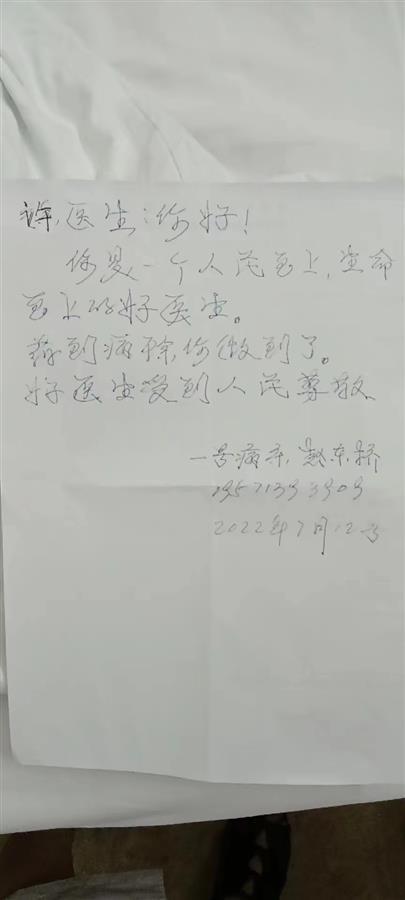 许医生:你好!
你是一个人民至上,生命
至上的好医生。
药到病除,你做到了。
好医生受到人民尊敬
一号病床,赵东桥
2022年7月12号